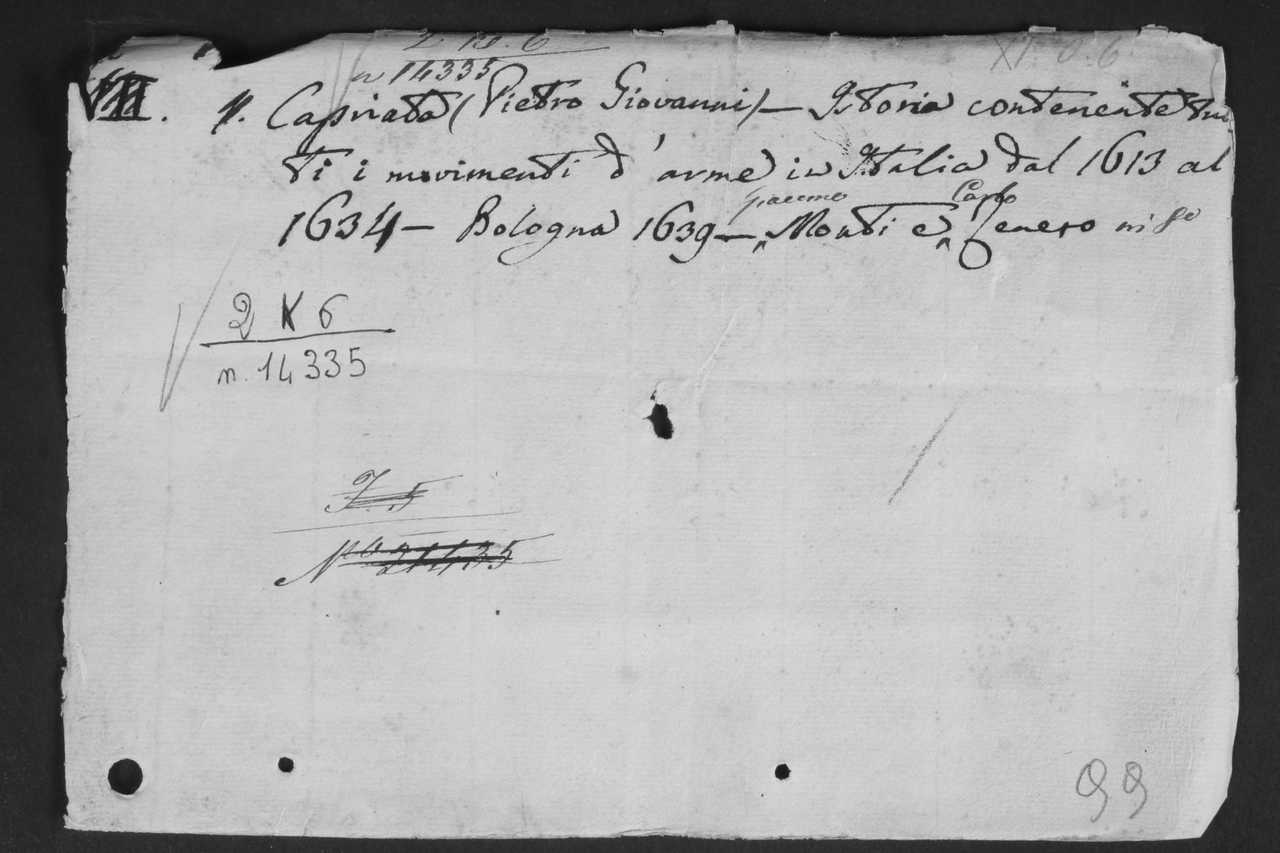 2 K. 6
n 14335
XI. O. 6
VIII. 4. Capriata (Pietro Giovanni) — Istoria contenente tut
ti i movimenti d'arme in Italia dal 1613 al
Giacomo Carlo
1634 — Bologna 1639 — Monti e Zenero in 8º
2 K 6
n. 14335
Z. 5
Nº 21435
99